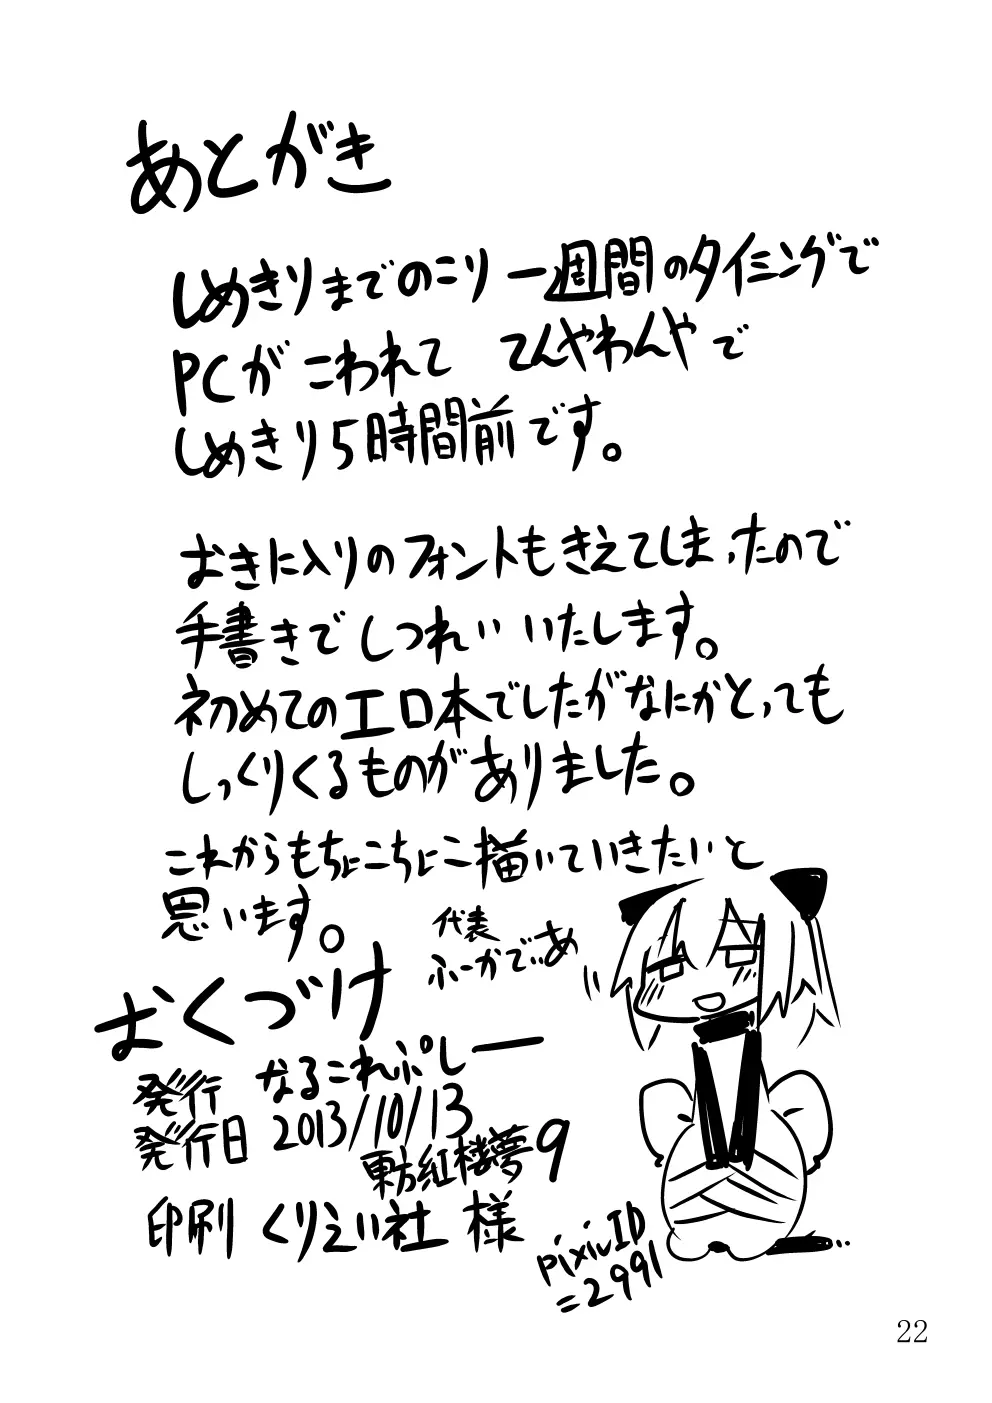 あとがき
しめきりまでのこり一週間のタイミングで
PCがこわれて てんやわんやで
しめきり5時間前です。
おきに入りのフォントもきえてしまったので
手書きでしつれいいたします。
初めてのエロ本でしたがなにかとっても
しっくりくるものがありました。
これからもちょこちょこ描いていきたいと
思います。
代表
ふーかでぃあ
おくづけ
発行 なるこれぷしー
発行日 2013/10/13
東方紅楼夢9
印刷 くりえい社 様
pixivID
=2991
22